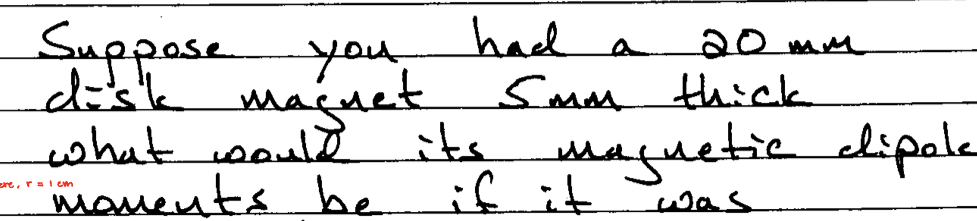 Suppose you had a 20 mm
disk magnet 5mm thick
what would its magnetic dipole
r = 1 cm
moments be if it was